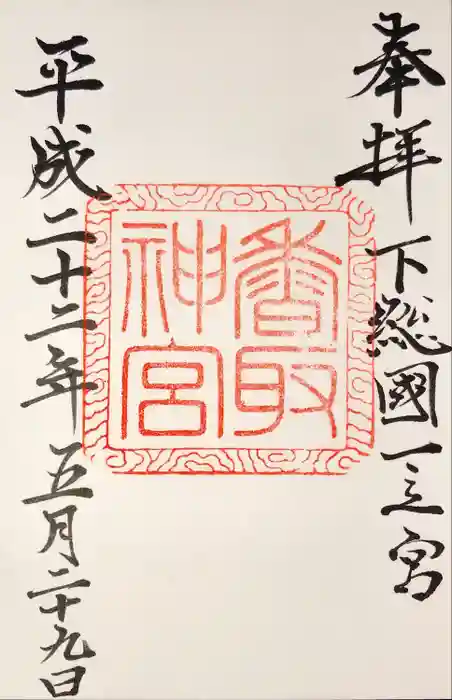 奉拝 下総國一之宮
香取
神宮
平成二十二年五月二十九日